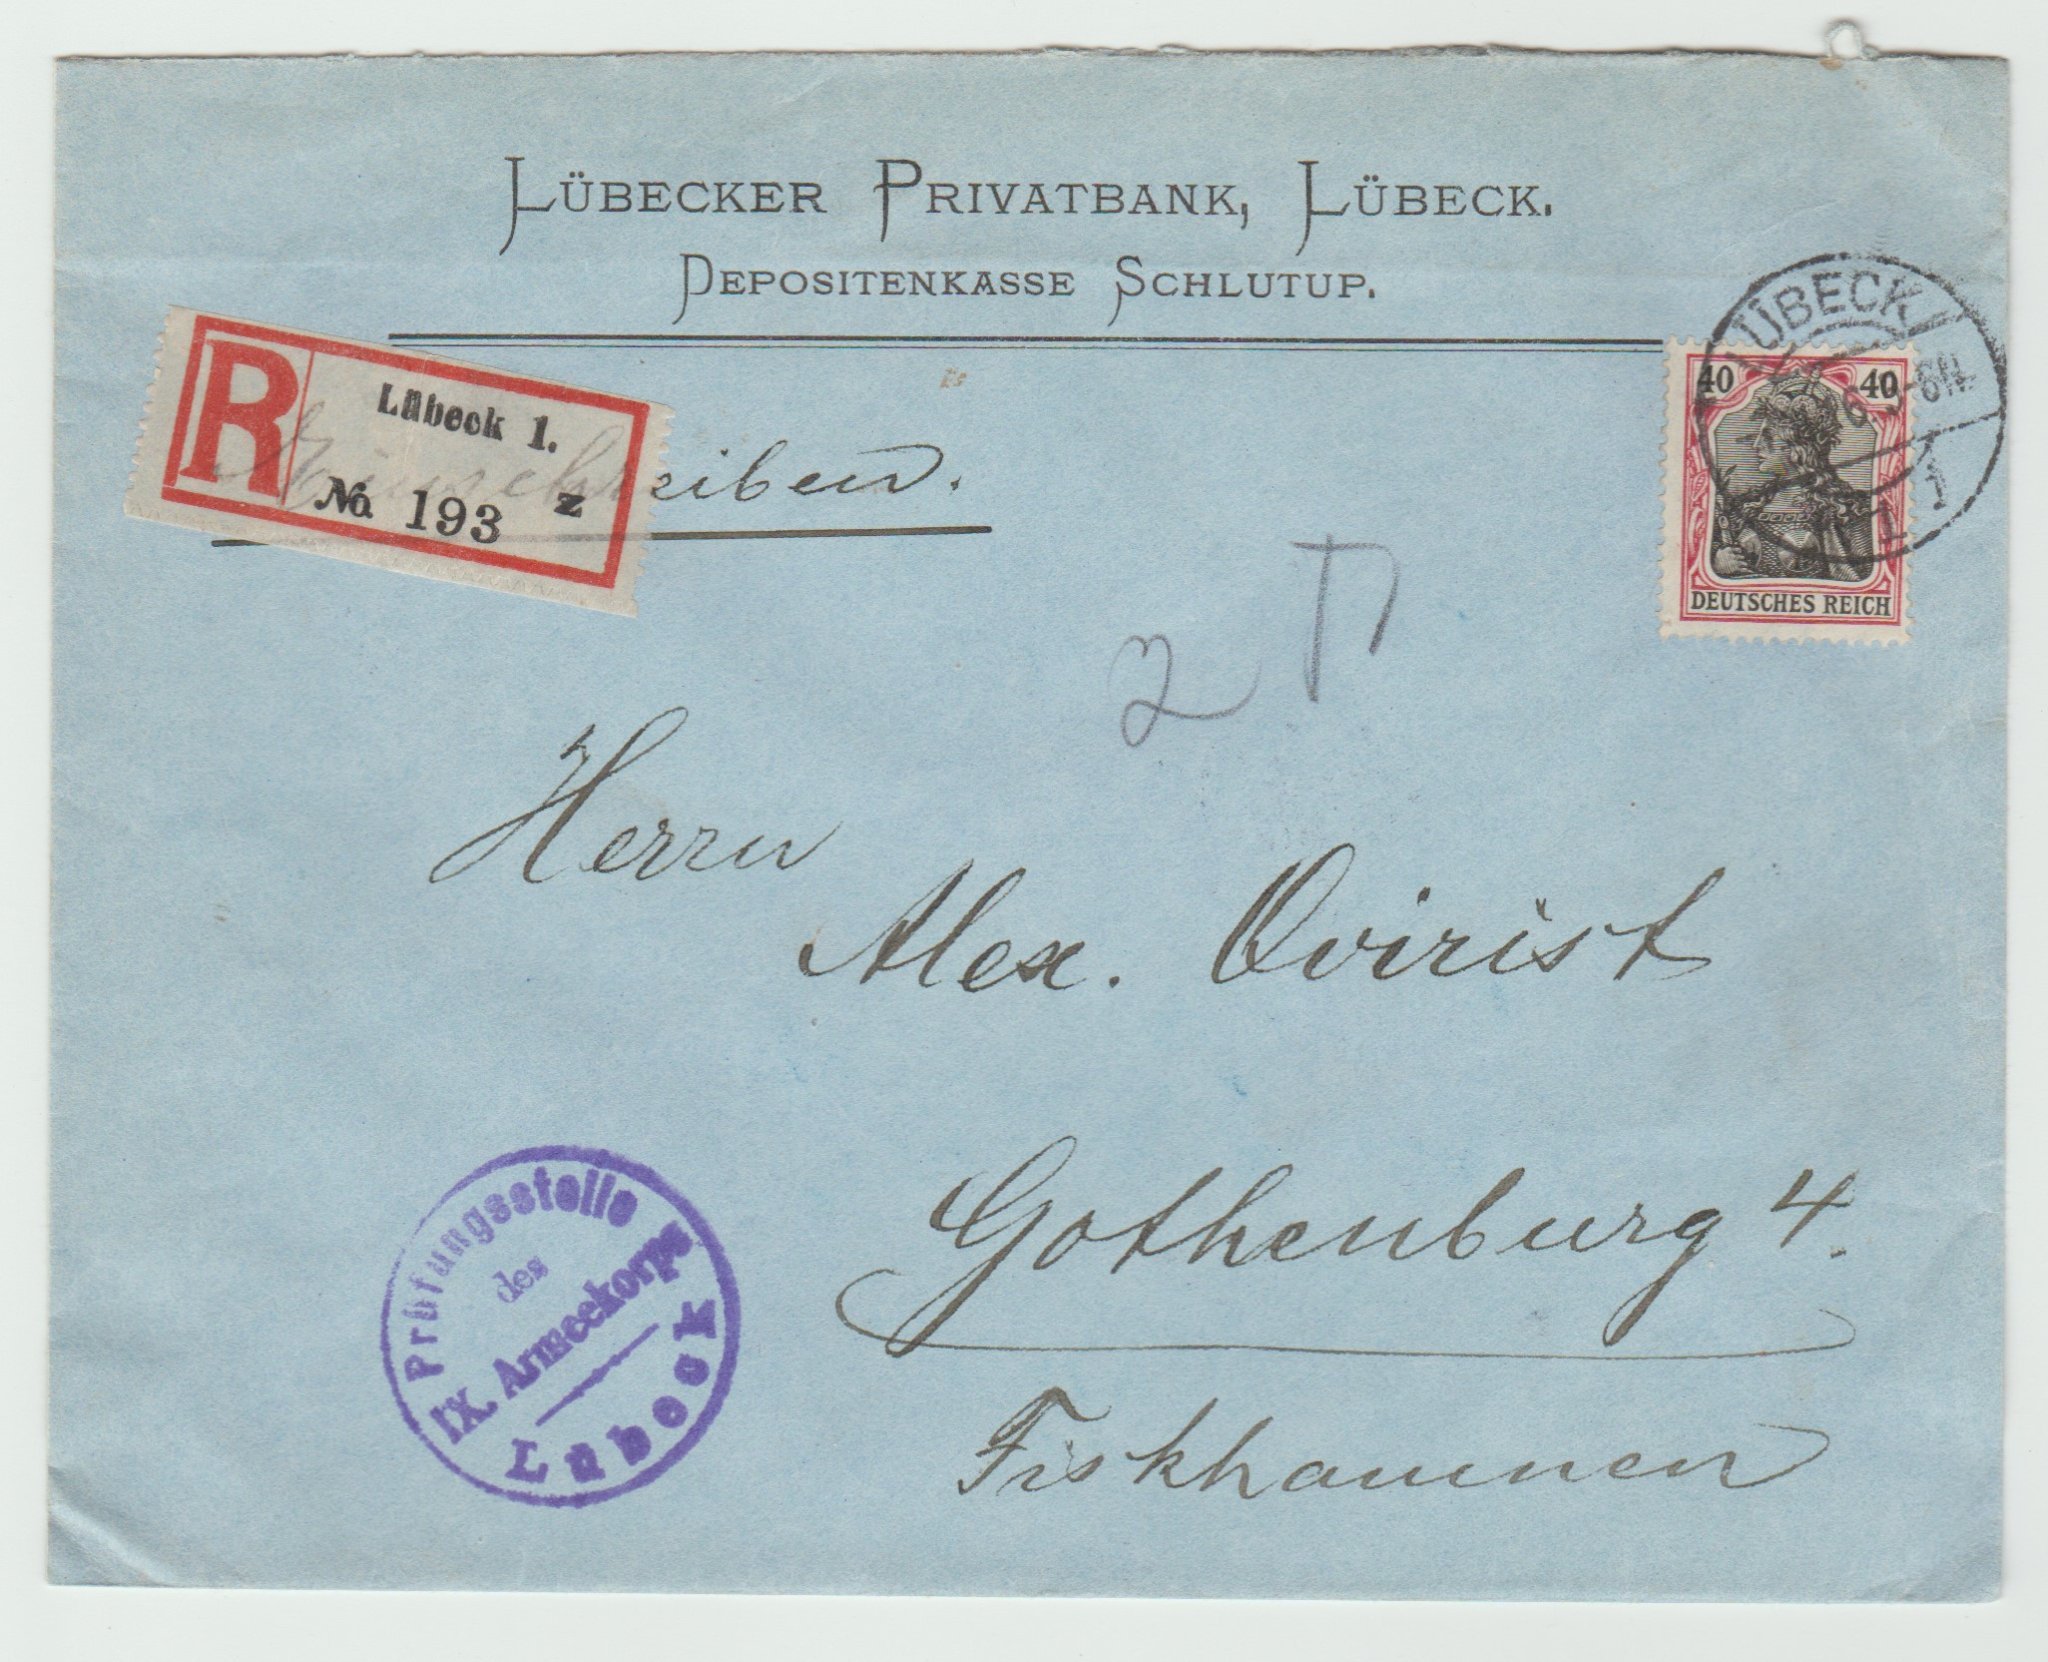 LÜBECKER PRIVATBANK, LÜBECK.
DEPOSITENKASSE SCHLUTUP.
R
Lübeck 1.
No. 193 z
Einschreiben.
LÜBECK
-6N
1
40 40
DEUTSCHES REICH
2
Herrn
Alex. Qvirist
Gothenburg 4.
Fiskhamnen
Prüfungsstelle
des
IX. Armeekorps
Lübeck